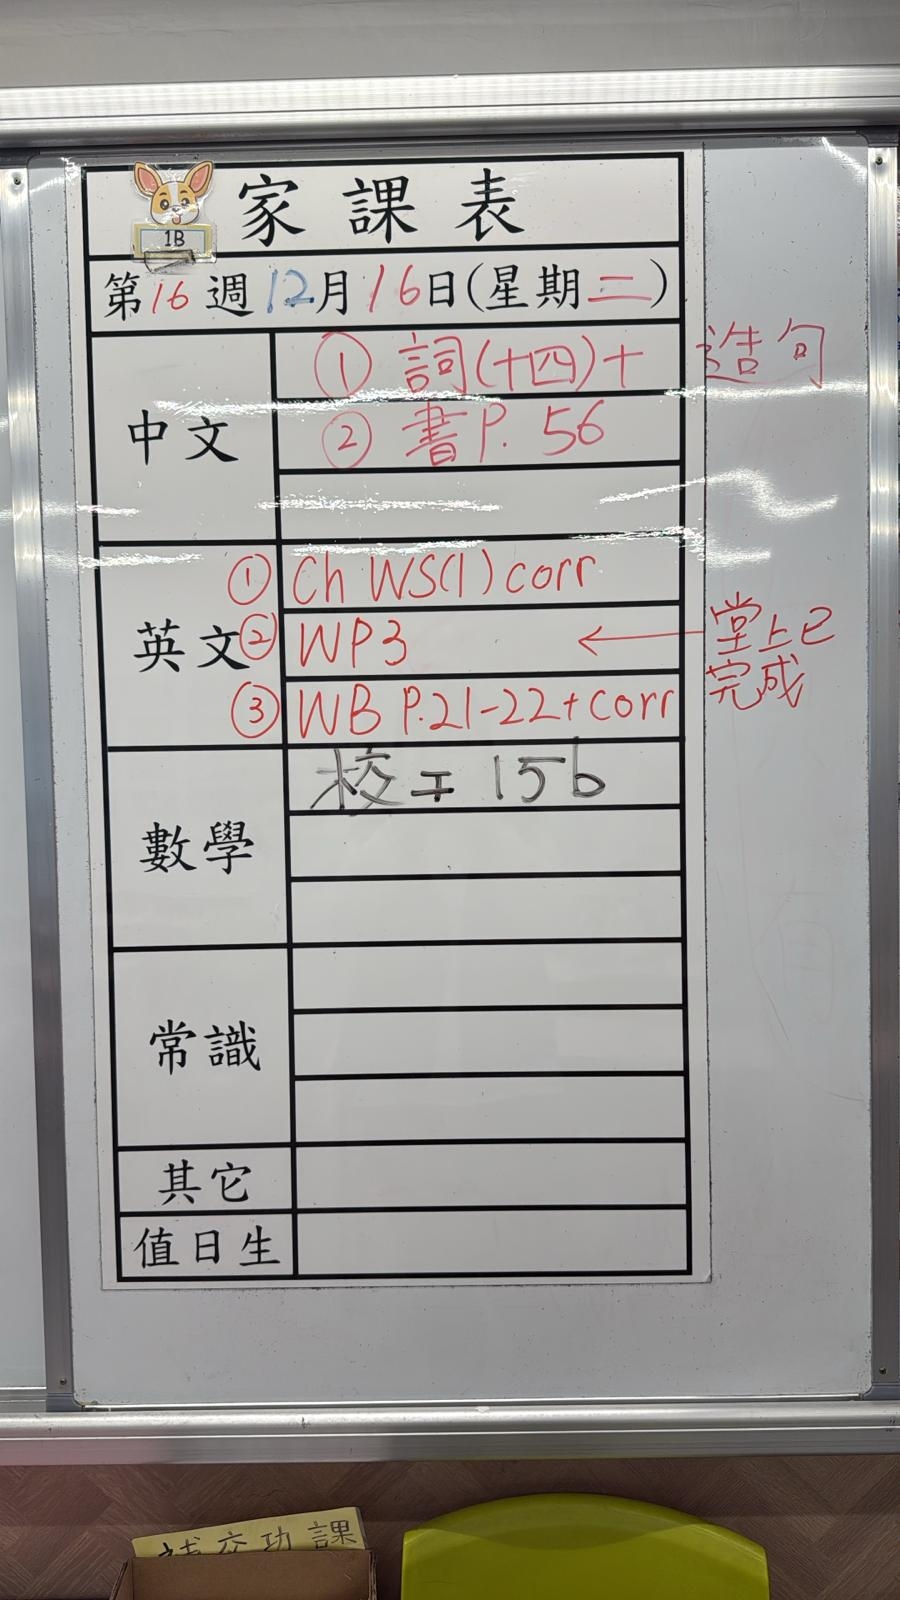 家課表
1B
第16週12月16日(星期二)
中文
① 詞(十四)+造句
② 書P. 56
英文
① Ch WS(1) corr
② WP3 ← 堂上已完成
③ WB P.21-22+corr
數學
校工 15b
常識
其它
值日生
交功課